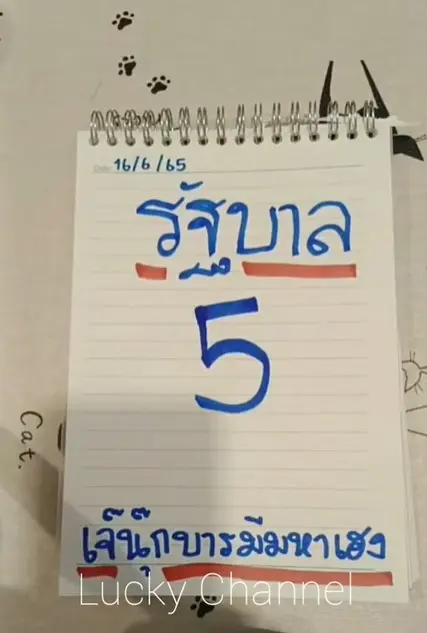 Date 16/6/65
รัฐบาล
5
เจ๊นุ๊กบารมีมหาเฮง
Lucky Channel
Cat.